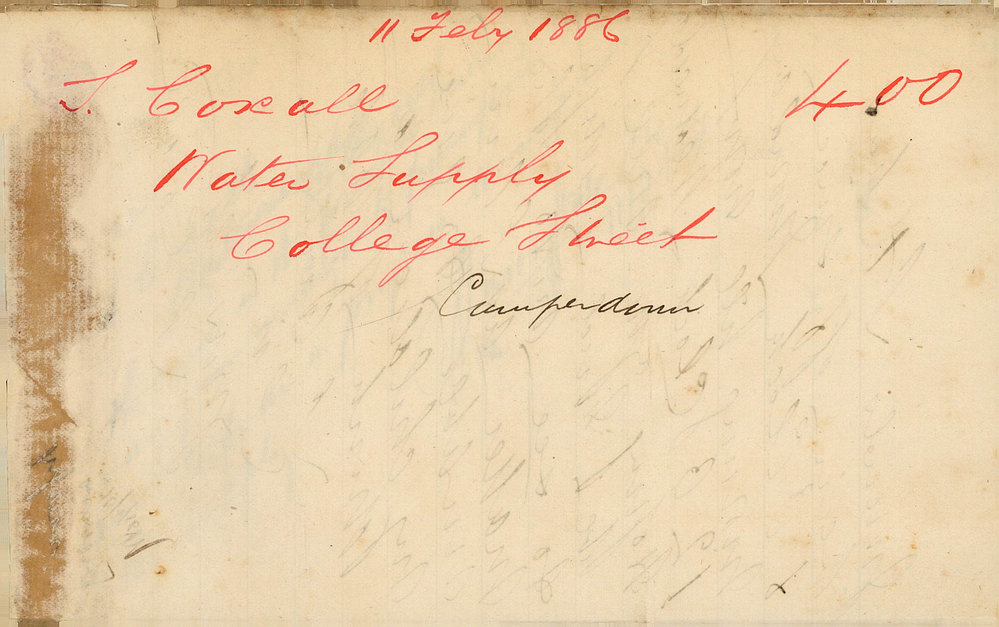 11 Feby 1886
T. Coxall 400
Water Supply
College Street
Camperdown